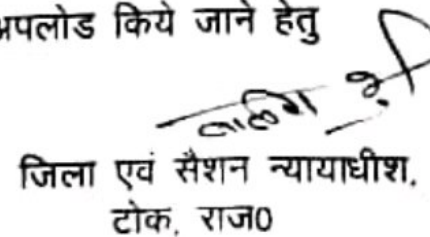 अपलोड किये जाने हेतु
जिला एवं सैशन न्यायाधीश,
टोंक, राज0